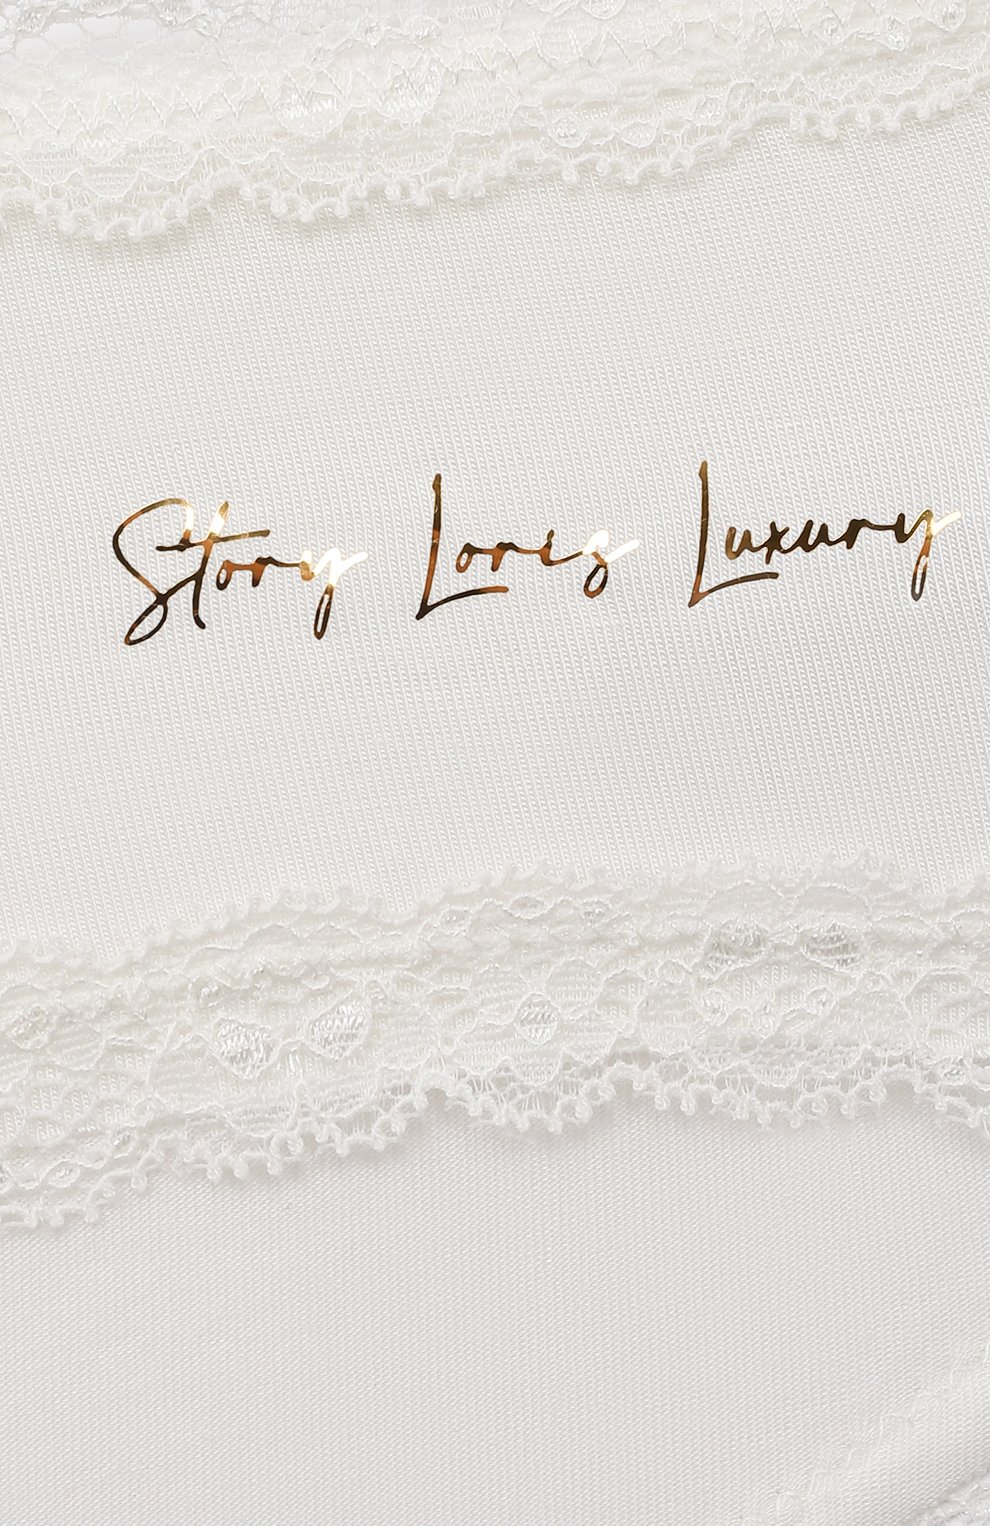 Story Loris Luxury